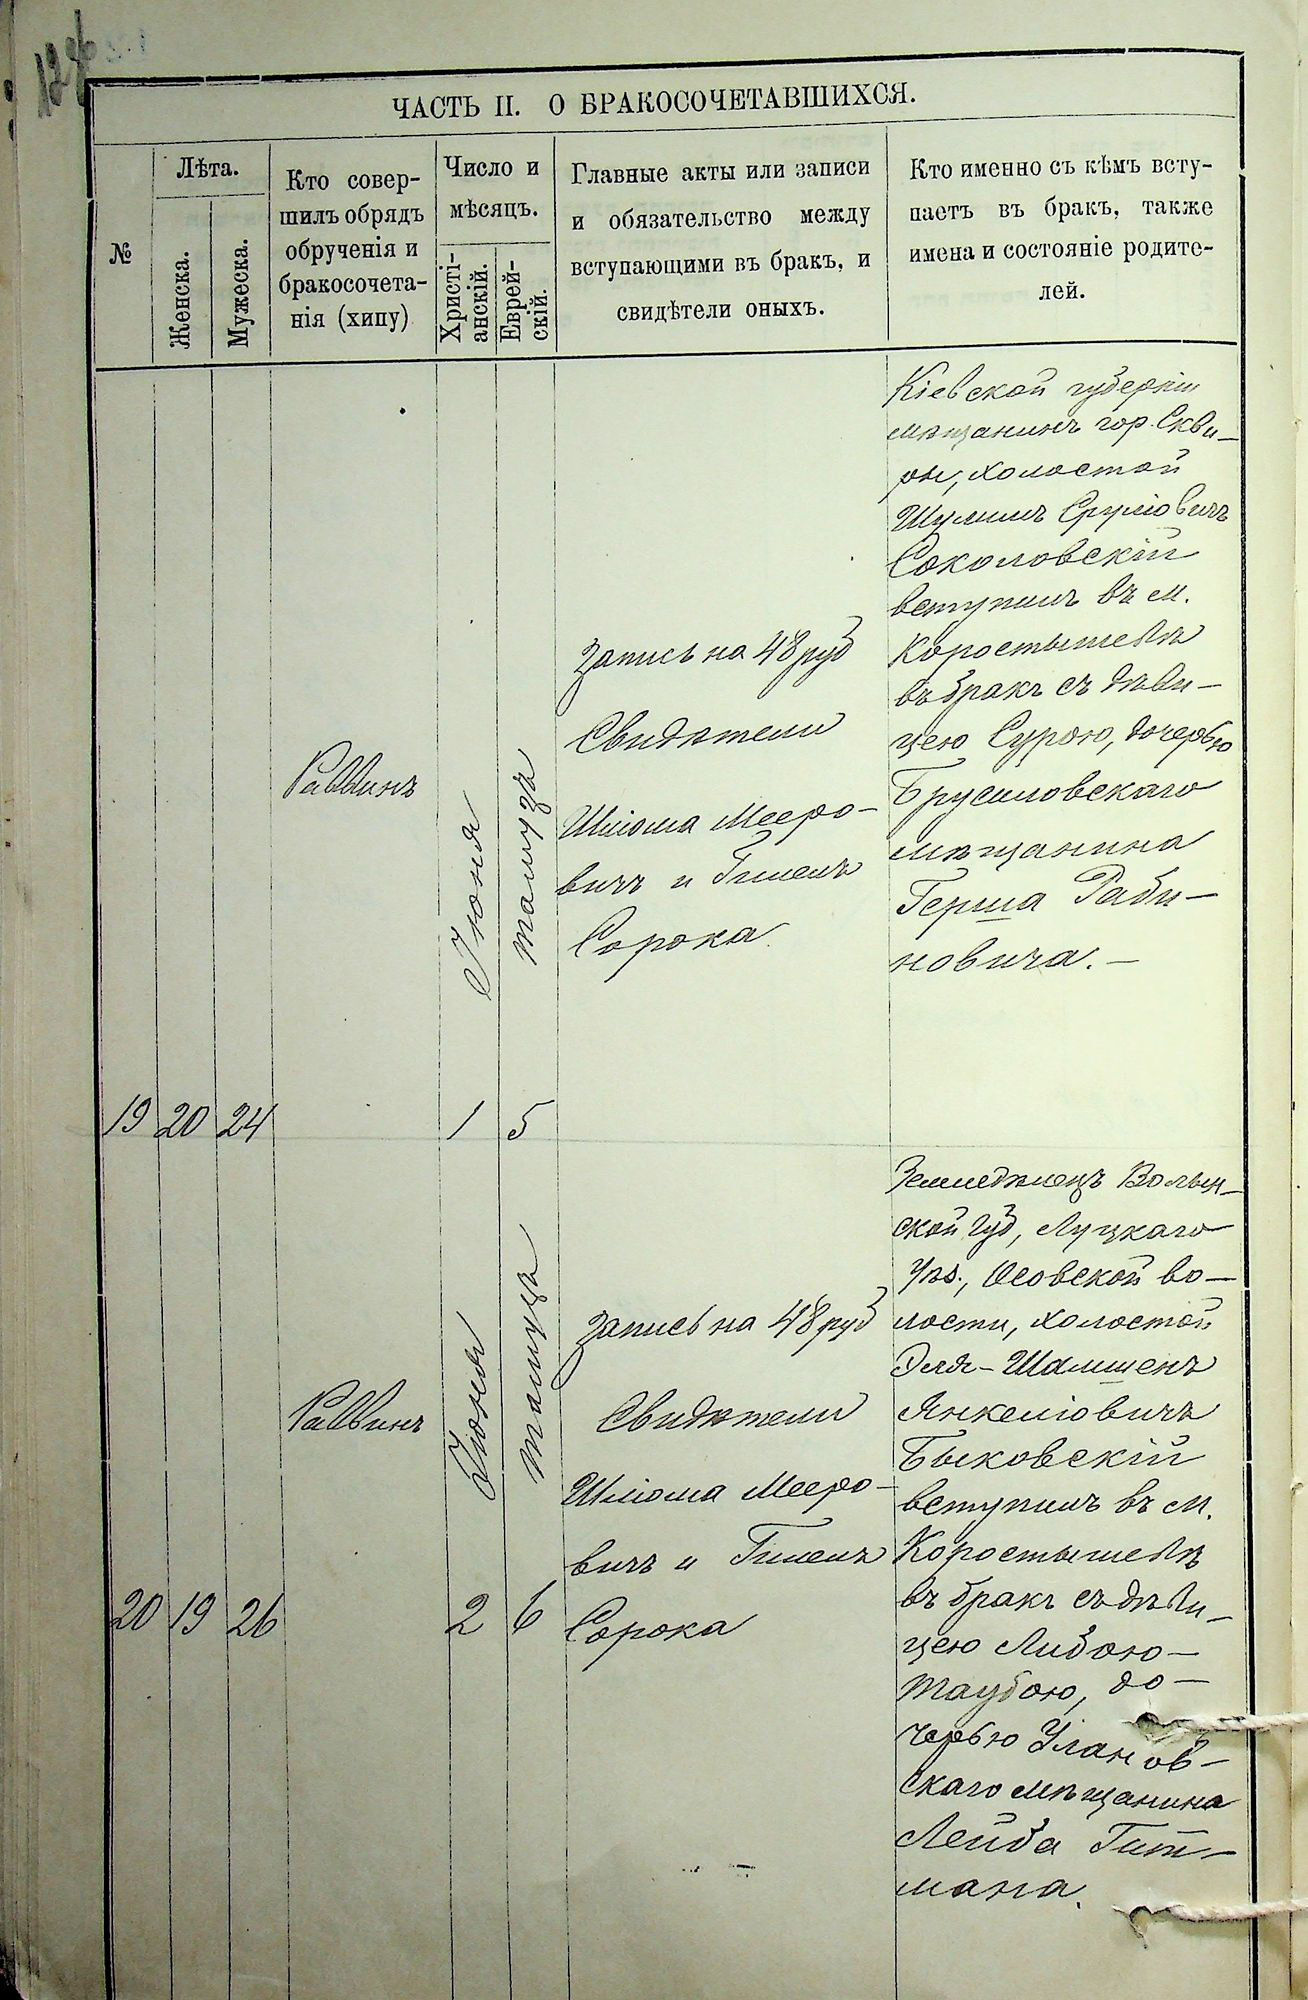 ЧАСТЬ II. О БРАКОСОЧЕТАВШИХСЯ.
№
Лѣта.
Женска.
Мужеска.
Кто совер-
шилъ обрядъ
обрученія и
бракосочета-
нія (хипу)
Число и
мѣсяцъ.
Христі-
анскій.
Еврей-
скій.
Главные акты или записи
и обязательство между
вступающими въ бракъ, и
свидѣтели оныхъ.
Кто именно съ кѣмъ всту-
паетъ въ бракъ, также
имена и состояніе родите-
лей.
19
20
24
Раввинъ
Іюня
1
тамуза
5
Запись на 48 руб
Свидѣтели
Шліома Мееро-
вичъ и Гилелъ
Сорока
Кіевской губерніи
мѣщанинъ гор. Скви-
ры, холостой
Шулимъ Сруліовичъ
Соколовскій
вступилъ въ м.
Коростышевѣ
въ бракъ съ дѣви-
цею Сурою, дочерью
Брусиловскаго
мѣщанина
Герша Раби-
новича. —
20
19
26
Раввинъ
Іюня
2
тамуза
6
Запись на 48 руб
Свидѣтели
Шліома Мееро-
вичъ и Гилелъ
Сорока
Земледѣлецъ Волын-
ской губ, Луцкаго
уѣз., Осовской во-
лости, холостой
Эля-Шамшенъ
Янкеліовичъ
Быковскій
вступилъ въ м.
Коростышевѣ
въ бракъ съ дѣви-
цею Либою-
Таубою, до-
черью Уланов-
скаго мѣщанина
Лейба Гит-
мана.